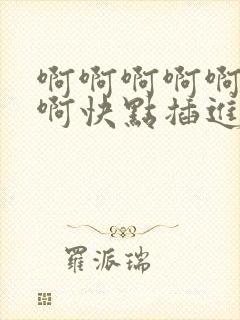 啊啊啊啊啊
啊快點插進
羅派瑞